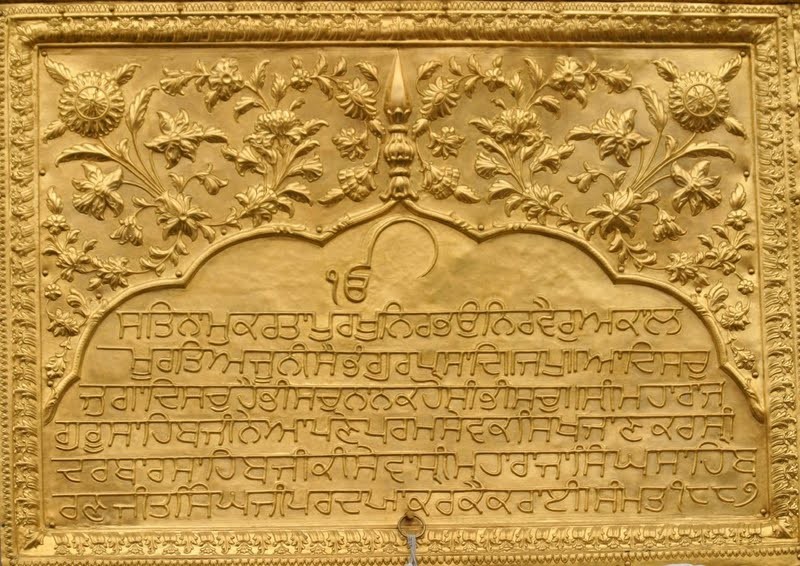 ੴ
ਸਤਿਨਾਮੁਕਰਤਾਪੁਰਖੁਨਿਰਭਉਨਿਰਵੈਰੁਅਕਾਲ
ਮੂਰਤਿਅਜੂਨੀਸੈਭੰਗੁਰਪ੍ਰਸਾਦਿ॥ਜਪੁ॥ਆਦਿਸਚੁ
ਜੁਗਾਦਿਸਚੁਹੈਭੀਸਚੁਨਾਨਕਹੋਸੀਭੀਸਚੁ॥੧॥ਸ੍ਰੀਮਹਾਰਾਜ
ਗੁਰੂਸਾਹਿਬਜੀਨੇਆਪਣੇਪਰਮਸੇਵਕਸਿਖਜਾਣਕਰਸ੍ਰੀ
ਦਰਬਾਰਸਾਹਿਬਜੀਕੀਸੇਵਾਸ੍ਰੀਮਹਾਰਾਜਾਸਿੰਘਸਾਹਿਬ
ਰਣਜੀਤਸਿੰਘਜੀਪਰਦਯਾਕਰਕੈਕਰਾਈ॥ਸੰਮਤ੧੮੮੭